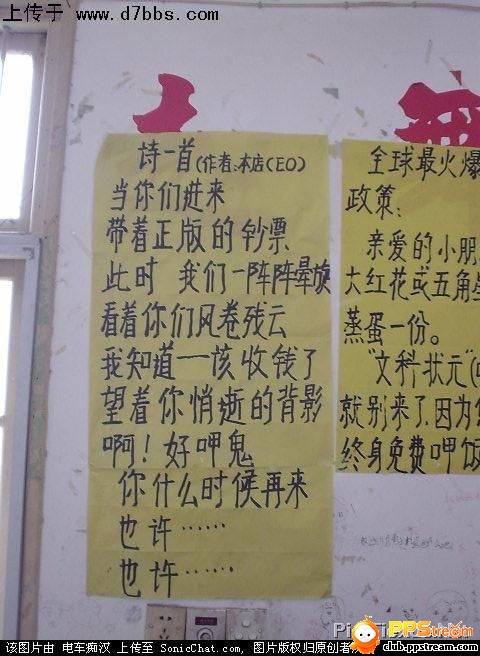 上传于 www.d7bbs.com
诗一首(作者:本店CEO)
当你们进来
带着正版的钞票
此时 我们一阵阵晕旋
看着你们风卷残云
我知道一该收钱了
望着你悄逝的背影
啊！好呷鬼
你什么时候再来
也许……
也许……
全球最火爆
政策：
亲爱的小朋
大红花或五角星
蒸蛋一份。
"文科状元"
就别来了.因为
终身免费呷饭
PPStream
club.ppstream.com
该图片由 电车痴汉 上传至 SonicChat.com 图片版权归原创者